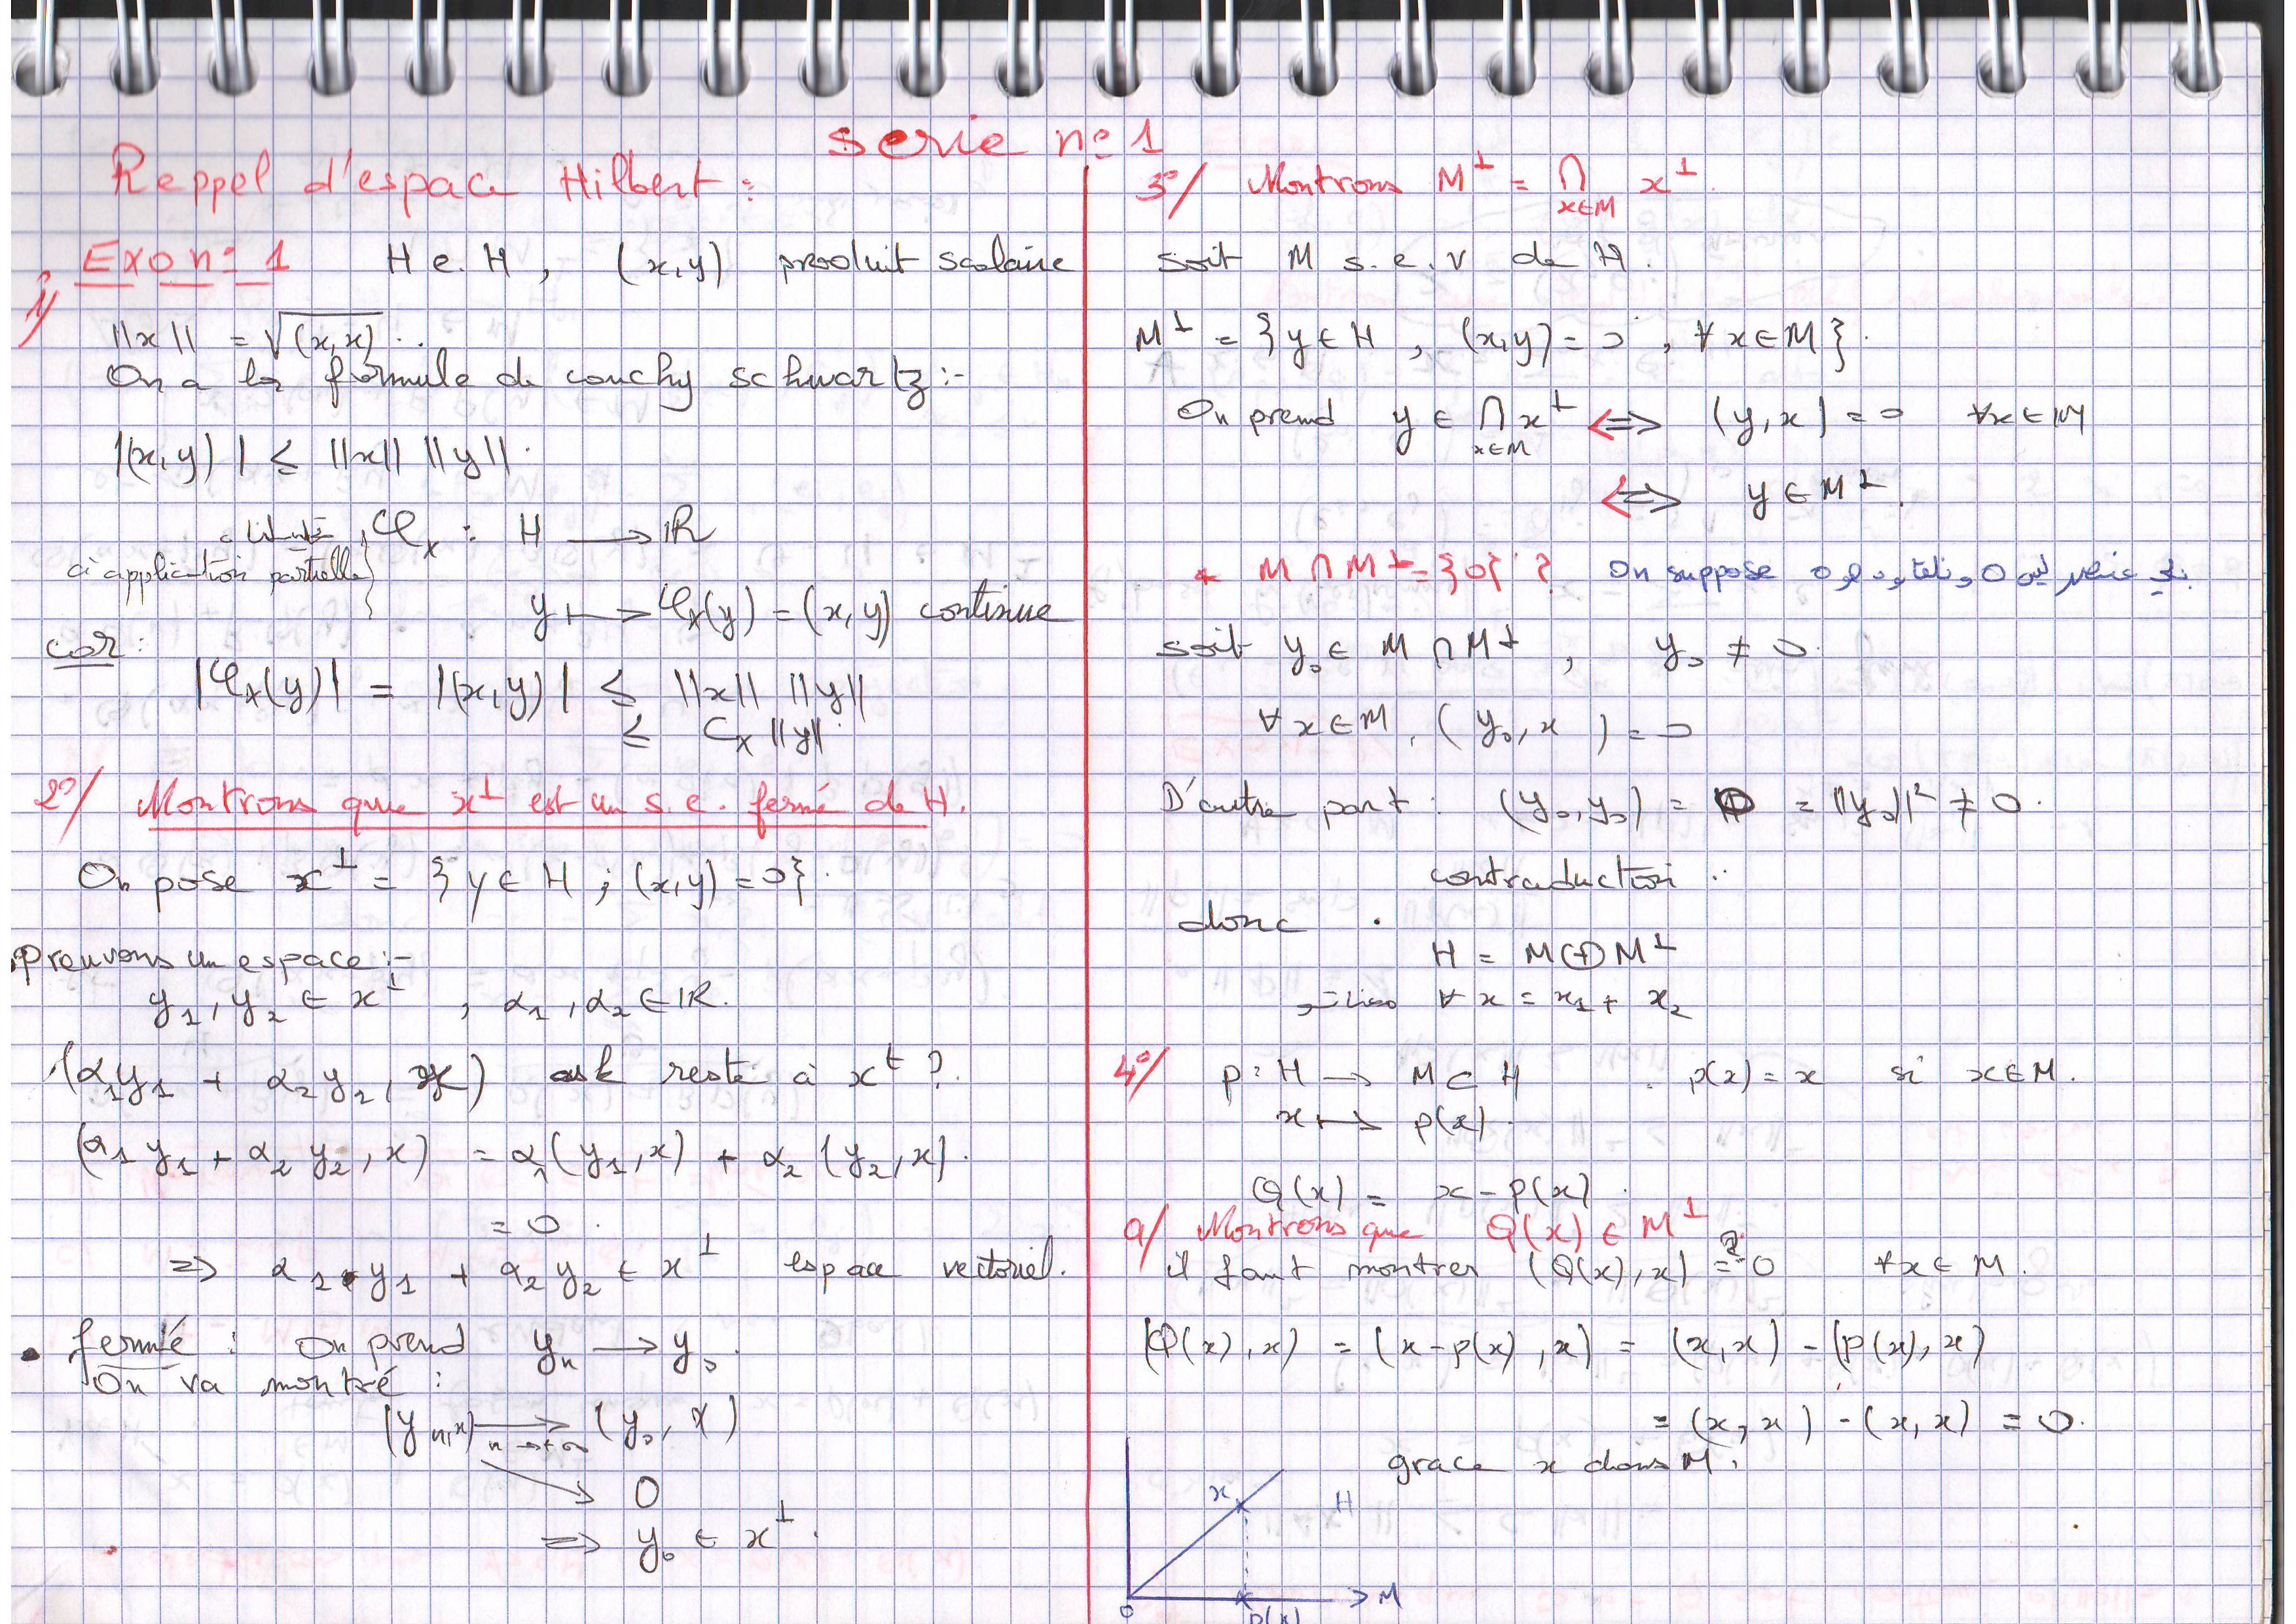 serie n° 1
Reppel d'espace Hilbert :
Exo n° 1 H e. H , (x,y) produit scalaire
1/
||x|| = √(x,x) ..
On a la formule de couchy schwartz :-
|(x,y)| ≤ ||x|| ||y|| .
φₓ : H → IR
à application partielle
y ↦ φₓ(y) = (x,y) continue
car :
|φₓ(y)| = |(x,y)| ≤ ||x|| ||y||
≤ Cₓ ||y||
2°/ Montrons que x⊥ est un s.e. fermé de H.
On pose x⊥ = {y ∈ H ; (x,y) = 0} .
preuvons un espace :-
y₁, y₂ ∈ x⊥ , α₁, α₂ ∈ IR.
(α₁y₁ + α₂y₂, x) reste à x⊥ ?
(α₁y₁ + α₂y₂, x) = α₁(y₁,x) + α₂(y₂,x).
= 0 .
⇒ α₁y₁ + α₂y₂ ∈ x⊥ espace vectoriel.
• fermé : On prend yₙ → y₀.
On va montré :
(yₙ,x) → n→+∞ (y₀, x)
↘ 0
⇒ y₀ ∈ x⊥ .
3°/ Montrons M⊥ = ∩ x∈M x⊥.
soit M s.e.v de H.
M⊥ = {y ∈ H , (x,y) = 0 , ∀x∈M}.
On prend y ∈ ∩ x∈M x⊥ ⇔ (y,x) = 0 ∀x∈M
⇔ y ∈ M⊥.
* M ∩ M⊥ = {0} ? On suppose
soit y₀ ∈ M ∩ M⊥ , y₀ ≠ 0.
∀x∈M, (y₀, x) = 0
D'autre part : (y₀,y₀) = = ||y₀||² ≠ 0.
contraduction ..
donc .
H = M ⊕ M⊥
∀ x = x₁ + x₂
4°/ p : H → M ⊂ H . p(x) = x si x∈M.
x ↦ p(x).
Q(x) = x - p(x) .
a/ Montrons que Q(x) ∈ M⊥
il faut montrer (Q(x),x) =? 0 ∀x∈M.
(Q(x),x) = (x-p(x),x) = (x,x) - (p(x),x)
= (x,x) - (x,x) = 0.
grace x dans M.
x H
0 p(x) M